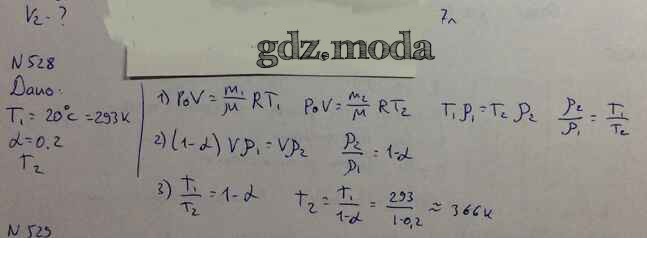 V₂ - ?
7л
gdz.moda
N 528
Дано:
T₁ = 20°C = 293K
α = 0,2
T₂
1) P₀V = m₁/M RT₁ P₀V = m₂/M RT₂ T₁ρ₁ = T₂ ρ₂ ρ₂/ρ₁ = T₁/T₂
2) (1-α) Vρ₁ = Vρ₂ ρ₂/ρ₁ = 1-α
3) T₁/T₂ = 1-α T₂ = T₁/1-α = 293/1-0,2 ≈ 366K
N 529